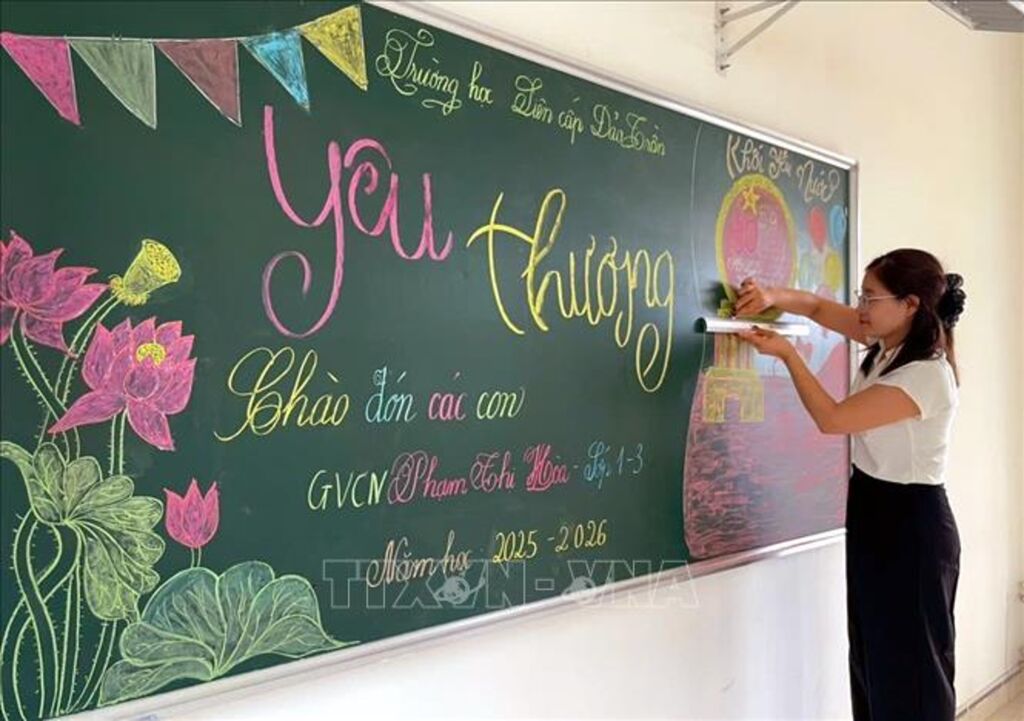 Trường học Liên cấp Đảo Trần
Khối Yêu Nước
Yêu thương
Chào đón các con
GVCN Phạm Thị Hòa - Lớp 1-3
Năm học 2025-2026
TTXVN-VNA